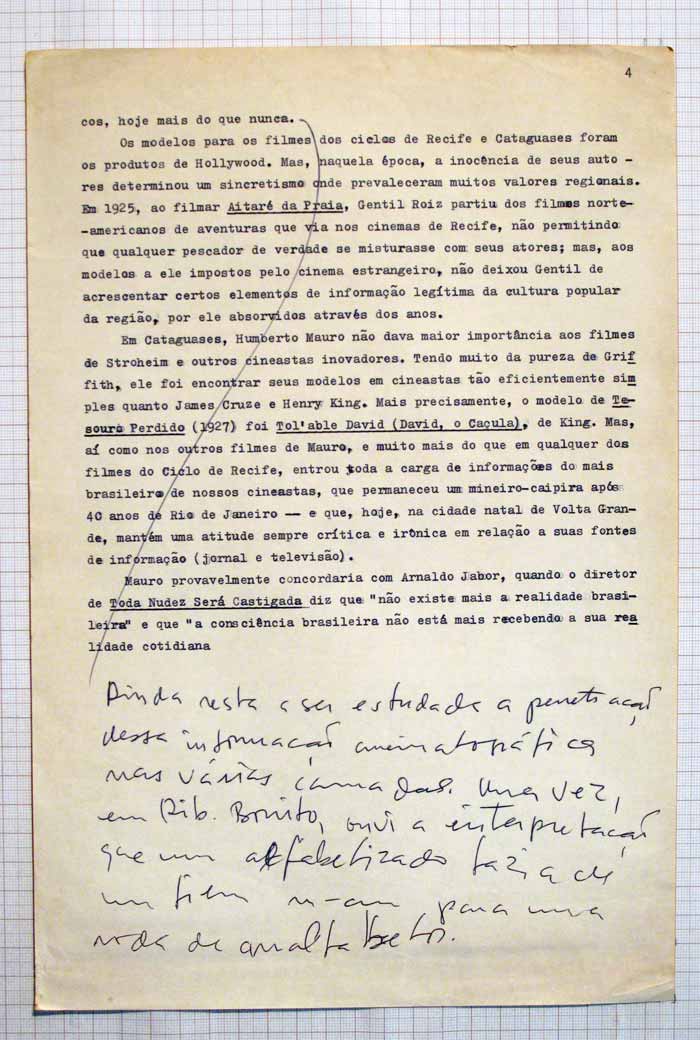 4
cos, hoje mais do que nunca.
Os modelos para os filmes dos ciclos de Recife e Cataguases foram
os produtos de Hollywood. Mas, naquela época, a inocência de seus auto -
res determinou um sincretismo onde prevaleceram muitos valores regionais.
Em 1925, ao filmar Aitaré da Praia, Gentil Roiz partiu dos filmes norte-
-americanos de aventuras que via nos cinemas de Recife, não permitindo
que qualquer pescador de verdade se misturasse com seus atores; mas, aos
modelos a ele impostos pelo cinema estrangeiro, não deixou Gentil de
acrescentar certos elementos de informação legítima da cultura popular
da região, por ele absorvidos através dos anos.
Em Cataguases, Humberto Mauro não dava maior importância aos filmes
de Stroheim e outros cineastas inovadores. Tendo muito da pureza de Grif
fith, ele foi encontrar seus modelos em cineastas tão eficientemente sim
ples quanto James Cruze e Henry King. Mais precisamente, o modelo de Te-
souro Perdido (1927) foi Tol'able David (David, o Caçula), de King. Mas,
aí como nos outros filmes de Mauro, e muito mais do que em qualquer dos
filmes do Ciclo de Recife, entrou toda a carga de informações do mais
brasileiro de nossos cineastas, que permaneceu um mineiro-caipira após
40 anos de Rio de Janeiro -- e que, hoje, na cidade natal de Volta Gran-
de, mantém uma atitude sempre crítica e irônica em relação a suas fontes
de informação (jornal e televisão).
Mauro provavelmente concordaria com Arnaldo Jabor, quando o diretor
de Toda Nudez Será Castigada diz que "não existe mais a realidade brasi-
leira" e que "a consciência brasileira não está mais recebendo a sua rea
lidade cotidiana
Ainda resta a ser estudada a penetração
dessa informação cinematográfica
nas várias camadas. Uma vez,
em Rib. Bonito, ouvi a interpretação
que um alfabetizado fazia de
um filme para uma
roda de analfabetos.